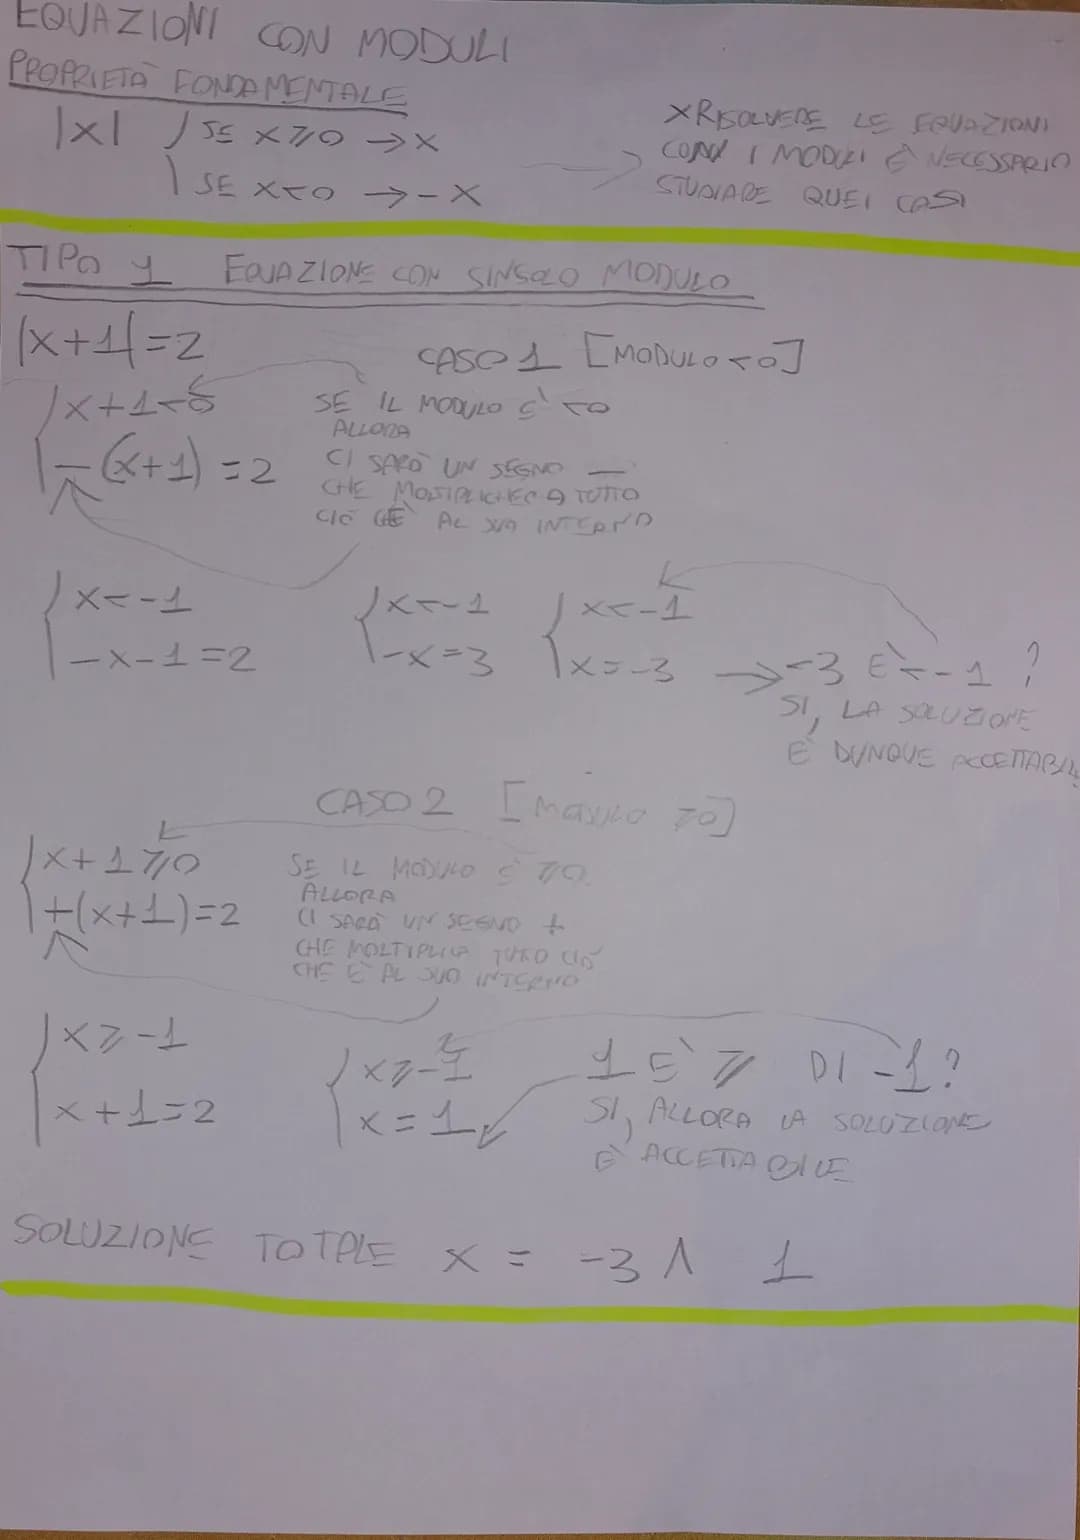 EQUAZIONI CON MODULI
PROPRIETÀ FONDAMENTALE
|x| { SE x ⩾ 0 → x
SE x < 0 → - x
→ x RISOLVERE LE EQUAZIONI
CON I MODULI È NECESSARIO
STUDIARE QUEI CASI
TIPO 1 EQUAZIONE CON SINGOLO MODULO
|x+1|=2
CASO 1 [MODULO < 0]
{ x+1<0
-(x+1) = 2
SE IL MODULO È < 0
ALLORA
CI SARÀ UN SEGNO —
CHE TUTTO
CIÒ CHE AL SUO INTERNO
{ x < -1
-x-1=2
{ x < -1
-x=3
{ x < -1
x=-3
→ -3 È < -1 ?
SI, LA SOLUZIONE
È DUNQUE ACCETTABILE
CASO 2 [MODULO ⩾ 0]
{ x+1 ⩾ 0
+(x+1)=2
SE IL MODULO È ⩾ 0
ALLORA
CI SARÀ UN SEGNO +
CHE MOLTIPLICA CIÒ
CHE È AL SUO INTERNO
{ x ⩾ -1
x+1=2
{ x ⩾ -1
x = 1
1 È ⩾ DI -1?
SI, ALLORA LA SOLUZIONE
È ACCETTABILE
SOLUZIONE TOTALE x = -3 ∧ 1